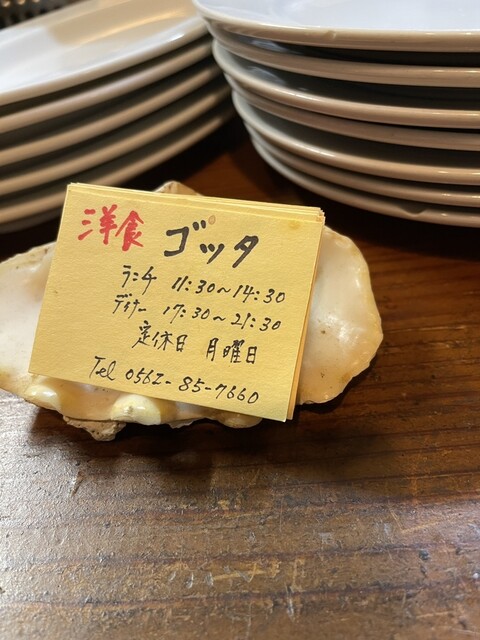 洋食 ゴッタ
ランチ 11:30～14:30
ディナー 17:30～21:30
定休日 月曜日
Tel 0562-85-7660